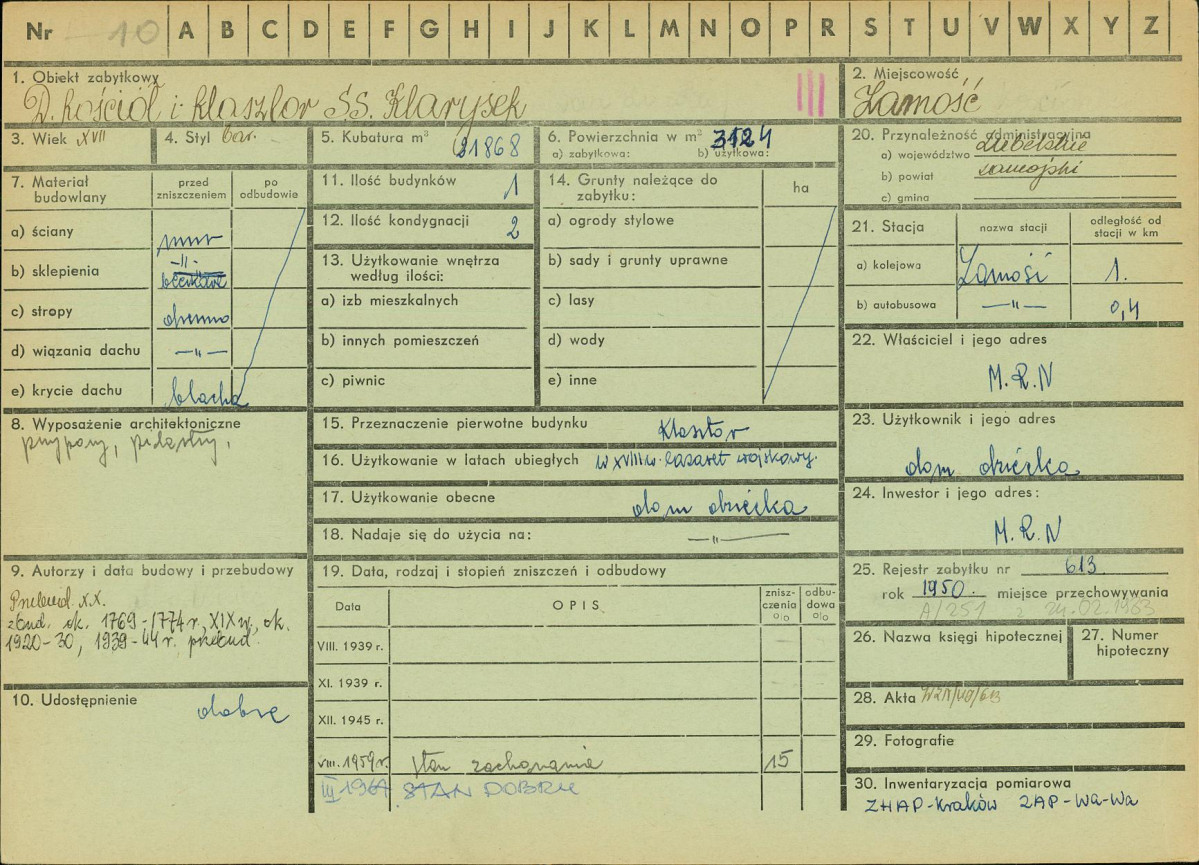 Nr 10 A B C D E F G H I J K L M N O P R S T U V W X Y Z
1. Obiekt zabytkowy
D. kościół i klasztor SS. Klarysek
III
2. Miejscowość
Zamość
3. Wiek XVII
4. Styl bar.
5. Kubatura m³
21868
6. Powierzchnia w m²
a) zabytkowa: b) użytkowa:
3124
20. Przynależność administracyjna
a) województwo Lubelskie
b) powiat zamojski
c) gmina
7. Materiał budowlany
przed zniszczeniem
po odbudowie
a) ściany mur
b) sklepienia -"-
c) stropy drewno
d) wiązania dachu -"-
e) krycie dachu blacha
11. Ilość budynków 1
12. Ilość kondygnacji 2
13. Użytkowanie wnętrza
według ilości:
a) izb mieszkalnych
b) innych pomieszczeń
c) piwnic
14. Grunty należące do
zabytku:
ha
a) ogrody stylowe
b) sady i grunty uprawne
c) lasy
d) wody
e) inne
21. Stacja
nazwa stacji
odległość od
stacji w km
a) kolejowa Zamość 1.
b) autobusowa -"- 0,4
22. Właściciel i jego adres
M.R.N
8. Wyposażenie architektoniczne
przypory, pilastry,
15. Przeznaczenie pierwotne budynku Klasztor
16. Użytkowanie w latach ubiegłych w XVIII w. lazaret wojskowy.
17. Użytkowanie obecne dom dziecka
18. Nadaje się do użycia na: -"-
23. Użytkownik i jego adres
dom dziecka
24. Inwestor i jego adres:
M.R.N
9. Autorzy i data budowy i przebudowy
Przebud. XX.
zbud. ok. 1769-1774 r, XIX w, ok.
1920-30, 1939-44 r. przebud.
10. Udostępnienie
dobre
19. Data, rodzaj i stopień zniszczeń i odbudowy
Data
OPIS
znisz-
czenia
%
odbu-
dowa
%
VIII. 1939 r.
XI. 1939 r.
XII. 1945 r.
VIII. 1959 r. stan zachowania 15
III 1964 STAN DOBRY
25. Rejestr zabytku nr 613
rok 1950. miejsce przechowywania
A/251 z 24.02.1963
26. Nazwa księgi hipotecznej
27. Numer
hipoteczny
28. Akta
29. Fotografie
30. Inwentaryzacja pomiarowa
ZHAP-Kraków ZAP-Wa-Wa